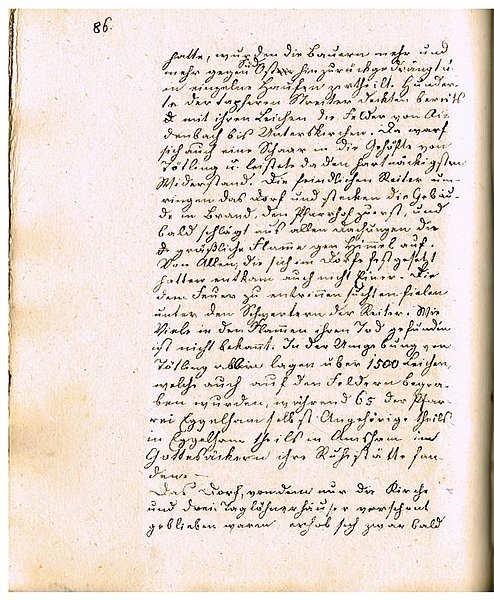 86.
hatte, wurden die Bauern mehr und
mehr gegen Süd Osten hinzurückgedrängt u.
in einzelne Haufen zertheilt. Hunder-
te der tapferen Streiter deckten bereits
mit ihren Leichen die Felder von Ai-
denbach bis Unterskirchen. Da warf
sich auch eine Schaar in die Gehöfte von
Tötling u. leistete da den hartnäckigsten
Widerstand. Die feindlichen Reiter um-
ringen das Dorf und stecken die Gebäu-
de in Brand, den Pfarrhof zuerst, und
bald schlägt aus allen Dachungen die
gräßliche Flamme gen Himel auf.
Von Allen, die sich im Dorfe festgesetzt
hatten entkam auch nicht Einer. Die
dem Feuer zu entrinnen suchten fielen
unter den Schwertern der Reiter. Wie
Viele in den Flammen ihren Tod gefunden
ist nicht bekannt. In der Umgebung von
Tötling allein lagen über 1500 Leichen,
welche auch auf den Feldern begra-
ben wurden, während 65 der Pfar-
rei Eggelham selbst Angehörige theils
in Eggelham theils in Amsham im
Gottesäckern ihre Ruhestätte fan-
den. —
Das Dorf, von dem nur die Kirche
und drei Taglöhnerhäuser verschont
geblieben waren erhob sich zwar bald